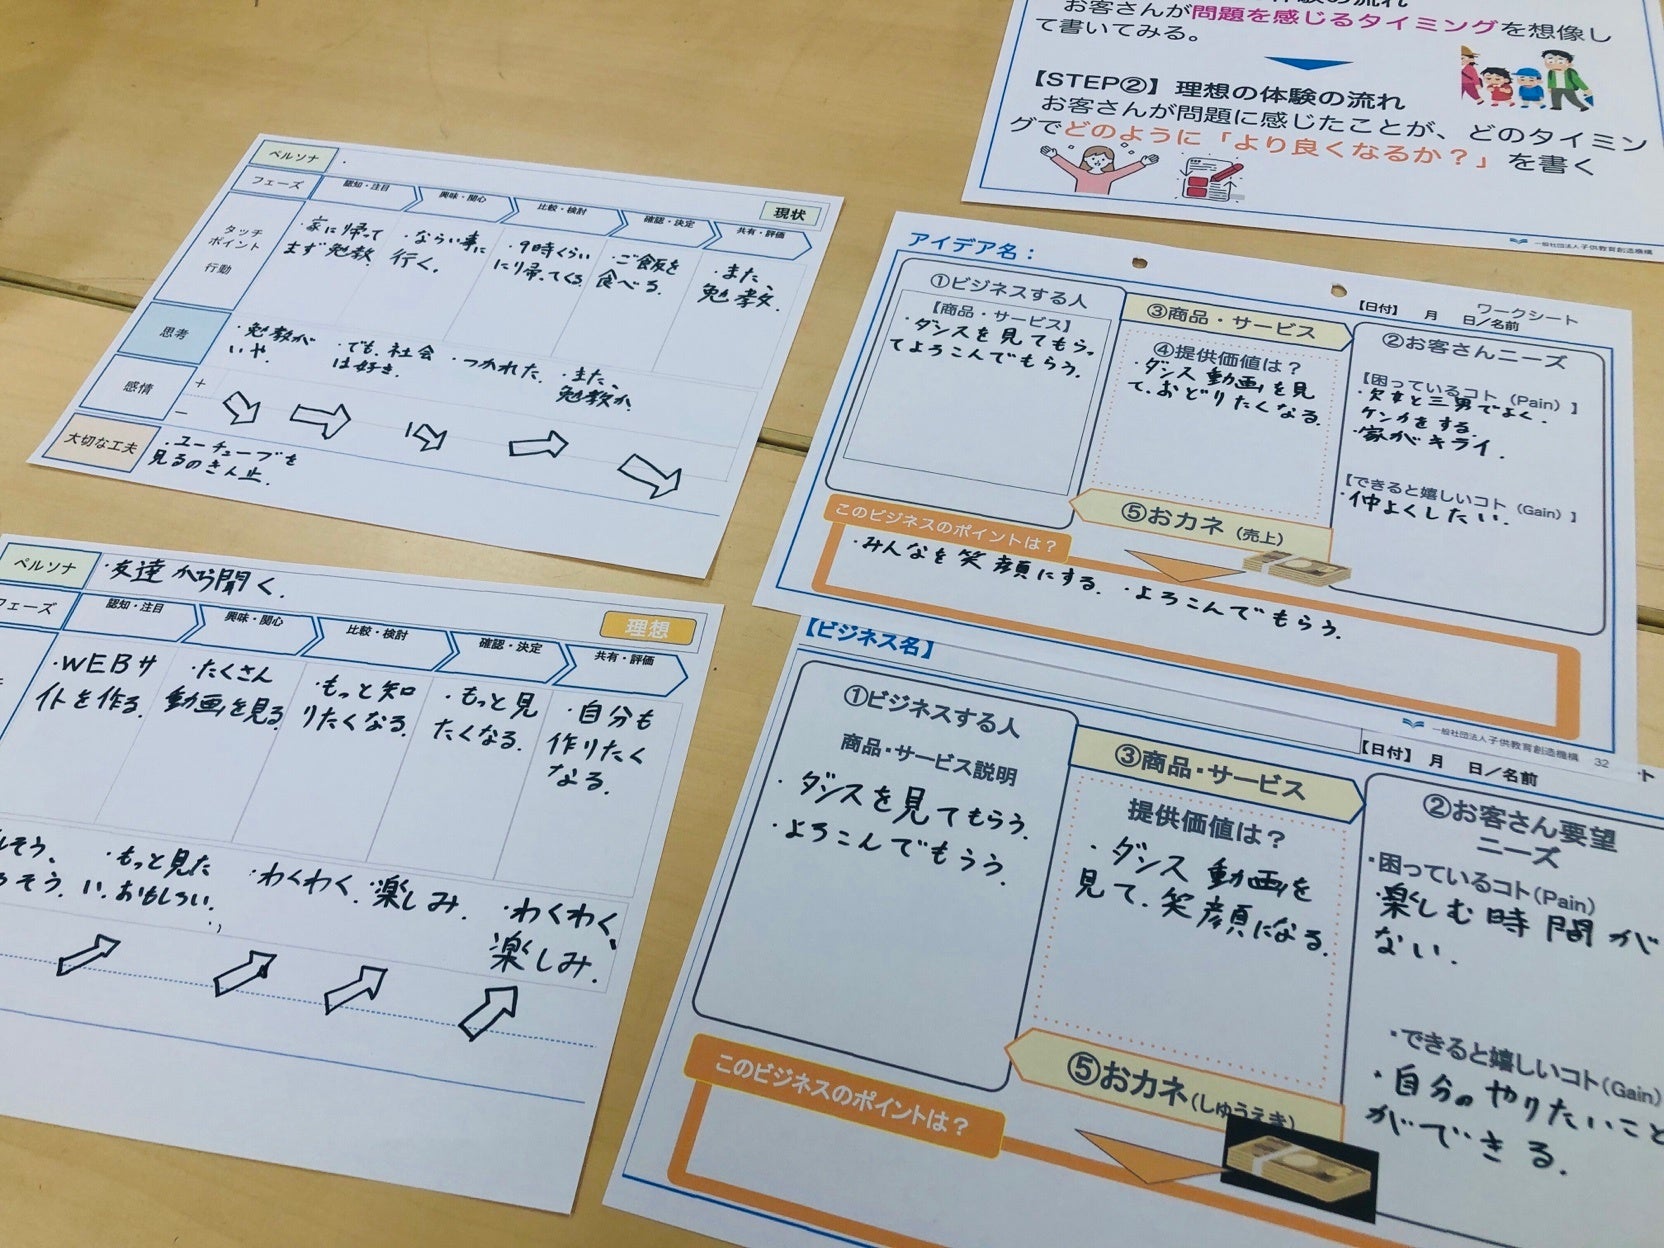 お客さんが問題を感じるタイミングを想像し
て書いてみる。
【STEP②】理想の体験の流れ
お客さんが問題に感じたことが、どのタイミン
グでどのように「より良くなるか？」を書く
一般社団法人子供教育創造機構
ペルソナ
現状
フェーズ
認知・注目
興味・関心
比較・検討
確認・決定
共有・評価
タッチ
ポイント
行動
・家に帰って
まず勉教.
・ならい事に
行く.
・9時くらい
にり帰ってくる.
・ご飯を
食べる.
・また、
勉教.
思考
・勉教が
いや.
・でも、社会
は好き.
・つかれた.
・また、
勉教か.
感情
＋
−
大切な工夫
・ユーチューブを
見るのきん止.
アイデア名：
【日付】　月　日／名前
ワークシート
①ビジネスする人
【商品・サービス】
・ダンスを見てもらっ
てよろこんでもらう.
③商品・サービス
④提供価値は？
・ダンス動画を見
て、おどりたくなる.
②お客さんニーズ
【困っているコト（Pain）】
・次女と三男でよく、
ケンカをする.
・家がキライ.
【できると嬉しいコト（Gain）】
・仲よくしたい.
⑤おカネ（売上）
このビジネスのポイントは？
・みんなを笑顔にする.・よろこんでもらう.
一般社団法人子供教育創造機構　32
ペルソナ
・友達から聞く.
理想
フェーズ
認知・注目
興味・関心
比較・検討
確認・決定
共有・評価
・WEBサ
イトを作る.
・たくさん
動画を見る
・もっと知
りたくなる.
・もっと見
たくなる.
・自分も
作りたく
なる.
そう、
そう.
・もっと見た
い.おもしろい.
・わくわく.楽しみ.
・わくわく、
楽しみ.
【ビジネス名】
【日付】　月　日／名前
ト
①ビジネスする人
商品・サービス説明
・ダンスを見てもらう.
・よろこんでもらう.
③商品・サービス
提供価値は？
・ダンス動画を
見て、笑顔になる.
②お客さん要望
ニーズ
・困っているコト(Pain)
・楽しむ時間が
ない.
・できると嬉しいコト(Gain)
・自分のやりたいこと
ができる.
⑤おカネ(しゅうえき)
このビジネスのポイントは？